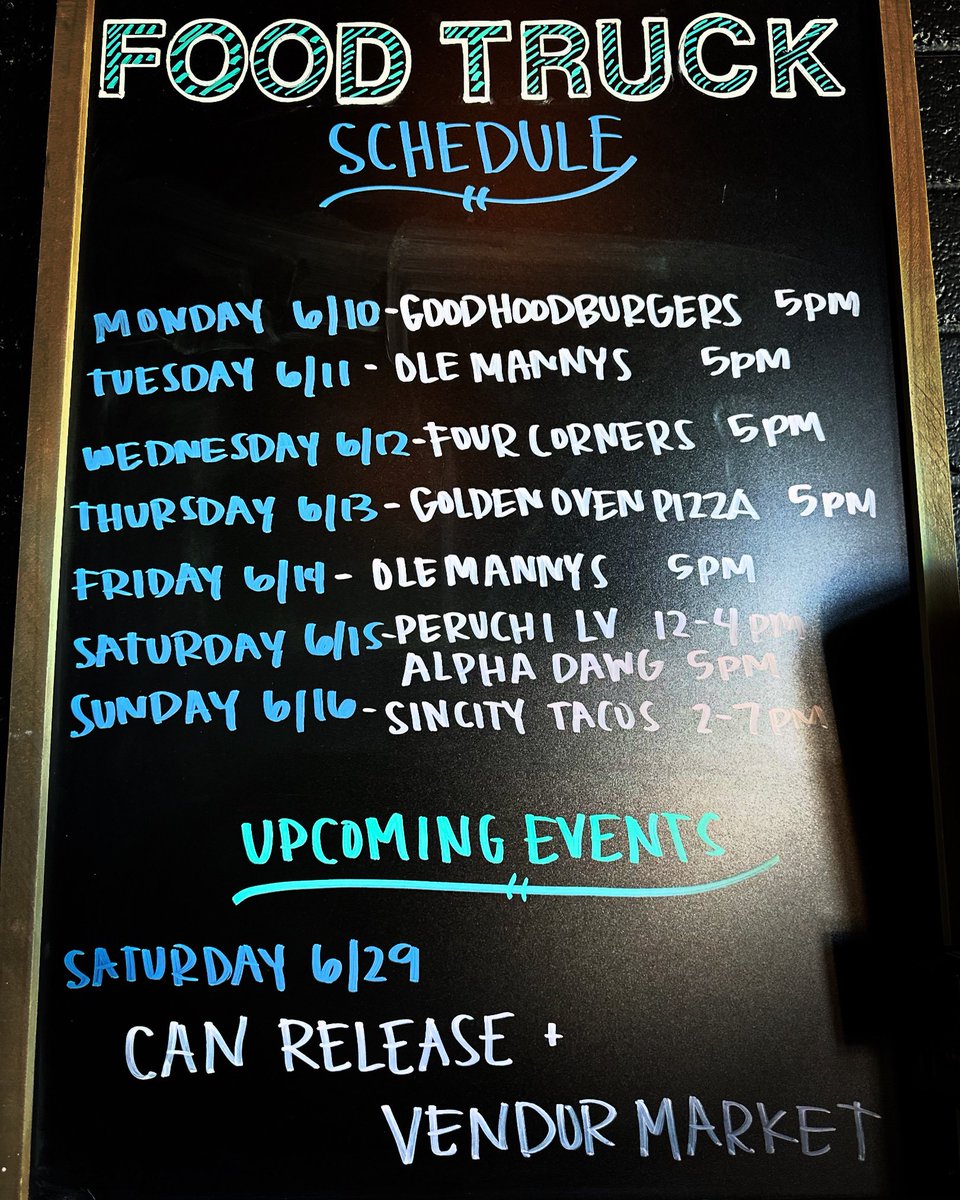 FOOD TRUCK
SCHEDULE
MONDAY 6/10-GOODHOODBURGERS 5PM
TUESDAY 6/11 - OLE MANNYS 5PM
WEDNESDAY 6/12-FOUR CORNERS 5PM
THURSDAY 6/13 - GOLDEN OVEN PIZZA 5PM
FRIDAY 6/14 - OLE MANNYS 5PM
SATURDAY 6/15-PERUCHI LV 12-4PM
ALPHA DAWG 5PM
SUNDAY 6/16 - SINCITY TACOS 2-7PM
UPCOMING EVENTS
SATURDAY 6/29
CAN RELEASE +
VENDOR MARKET